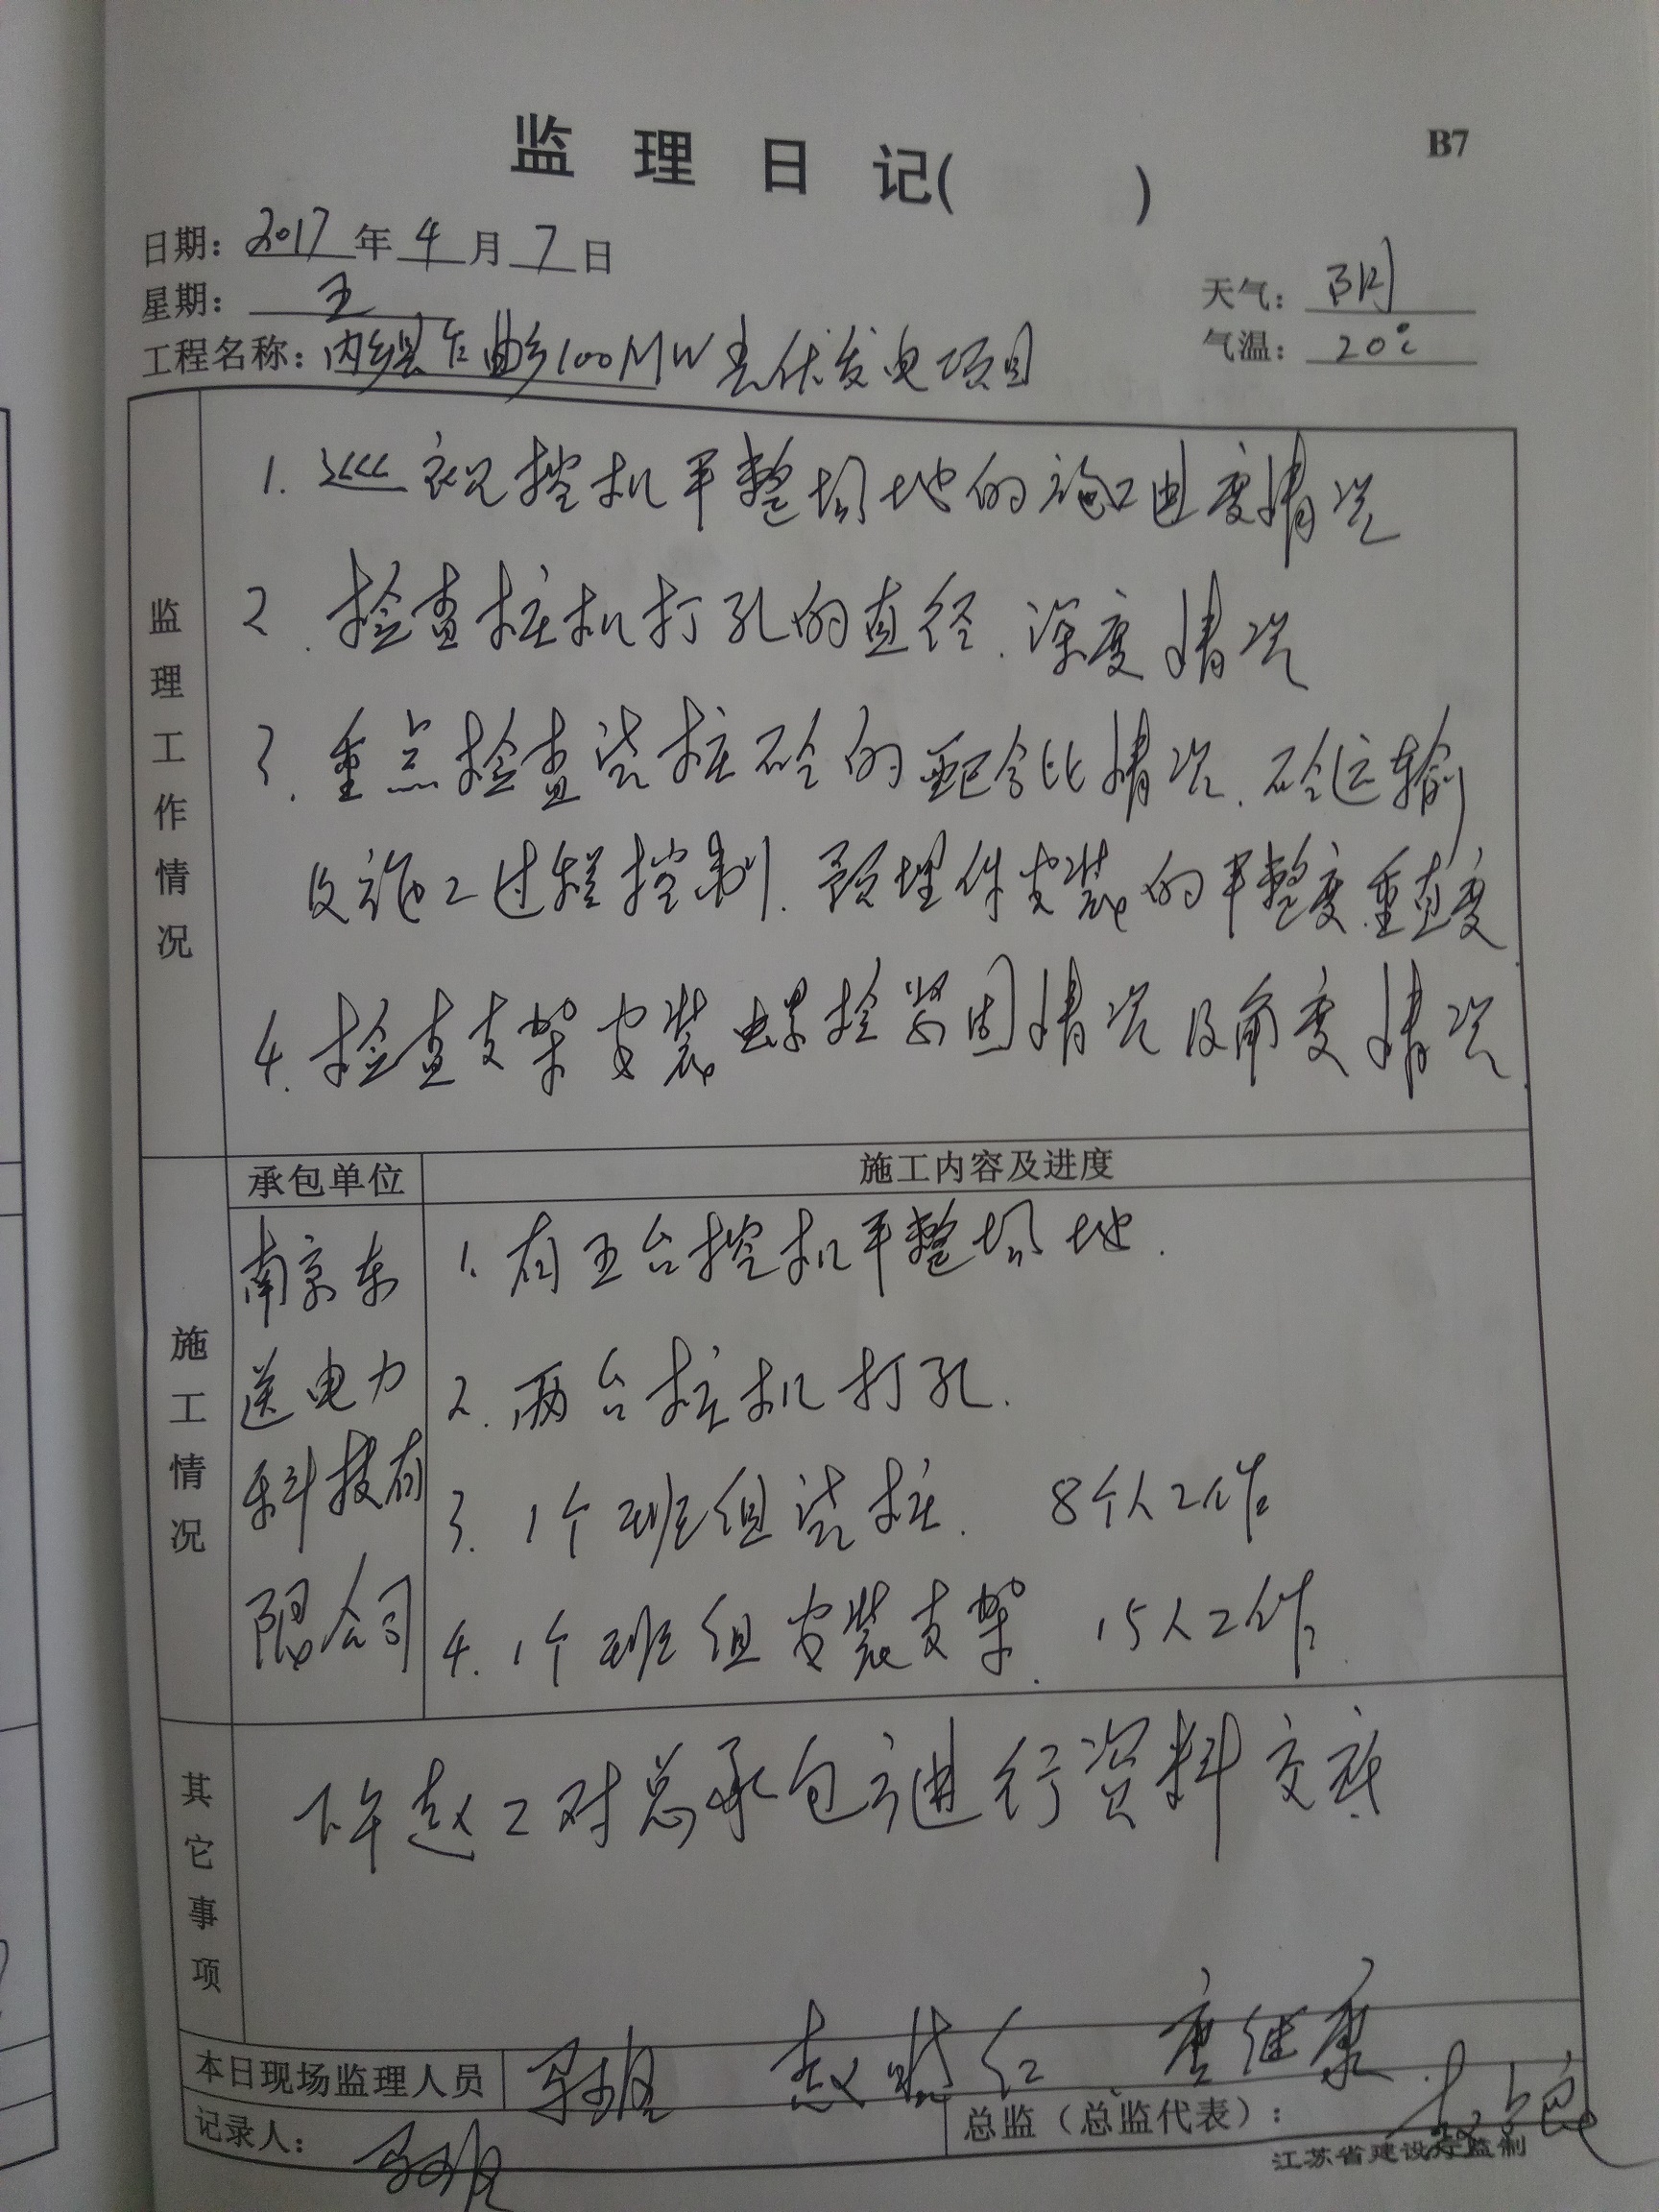 监理日记( )
B7
日期：2017年4月7日
星期：五
天气：阴
工程名称：内乡县乍曲乡100MW光伏发电项目
气温：20℃
监理工作情况
1. 巡视挖机平整场地的施工进度情况
2. 检查桩机打孔的直径、深度情况
3. 重点检查浇桩砼的配合比情况、砼运输
及施工过程控制、预埋件安装的平整度、垂直度
4. 检查支架安装螺栓紧固情况及角度情况
施工情况
承包单位
施工内容及进度
南京东
送电力
科技有
限公司
1. 有五台挖机平整场地.
2. 两台桩机打孔.
3. 1个班组浇桩. 8个人工作
4. 1个班组安装支架. 15人工作
其它事项
下午赵工对总承包方进行资料交底
本日现场监理人员
唐继康
记录人：
总监（总监代表）：
江苏省建设厅监制